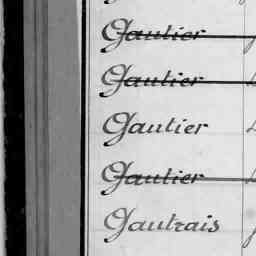 Gautier
Gautier
Gautier
Gautier
Gautrais